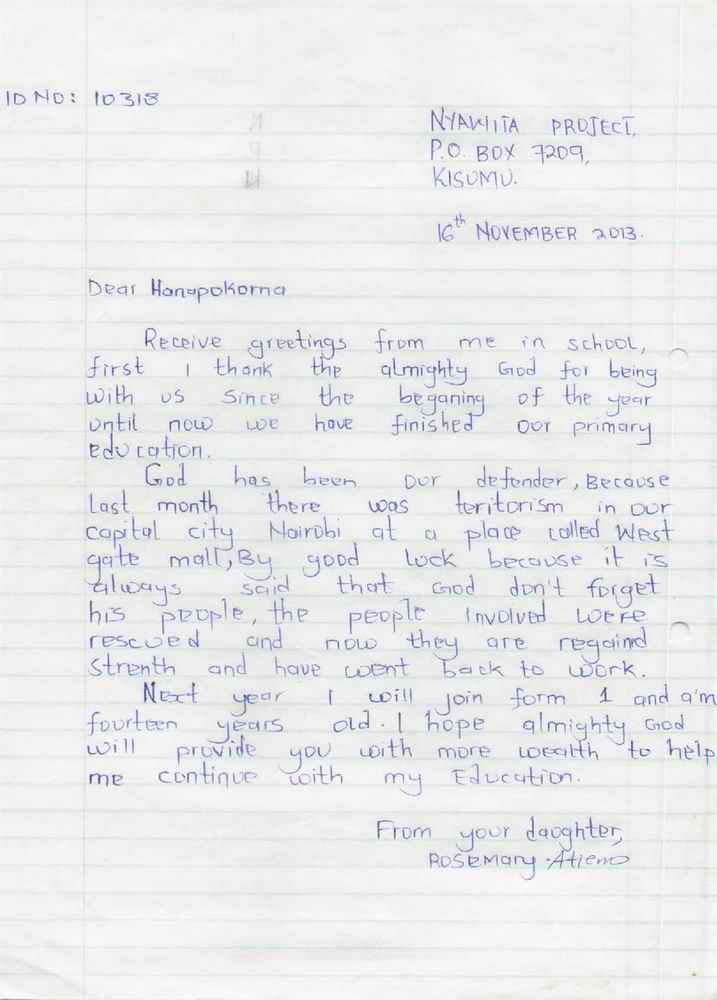 ID NO: 10318
NYAWITA PROJECT,
P.O. BOX 7209,
KISUMU.
16th NOVEMBER 2013.
Dear Hanapokorna
Receive greetings from me in school,
first I thank the almighty God for being
with us since the beganing of the year
until now we have finished our primary
education.
God has been our defender, Because
last month there was teritorism in our
capital city Nairobi at a place called West
gate mall, By good luck because it is
always said that God don't forget
his people, the people involved were
rescued and now they are regaind
strenth and have went back to work.
Next year I will join form 1 and a'm
fourteen years old. I hope almighty God
will provide you with more wealth to help
me continue with my Education.
From your daughter,
ROSEMARY Atieno